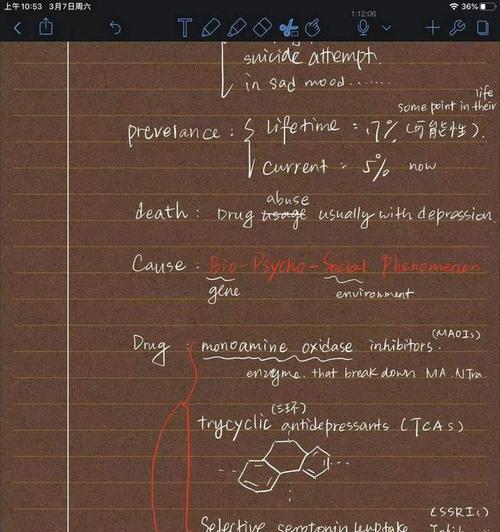 上午10:53 3月7日周六
36%
1:12:06
suicide attempt.
in sad mood......
life
some point in their
prevelance : Lifetime = 17% (可能性).
current = 5% now
abuse
death : Drug usage usually with depression
Cause : Bio-Psycho-Social Phenomenon
gene
environment
(MAOIs)
Drug : monoamine oxidase inhibitors.
enzyme. that break down MA. NTra.
(三环)
trycyclic antidepressants (TCAs)
(SSRIs)
Selective serotonin